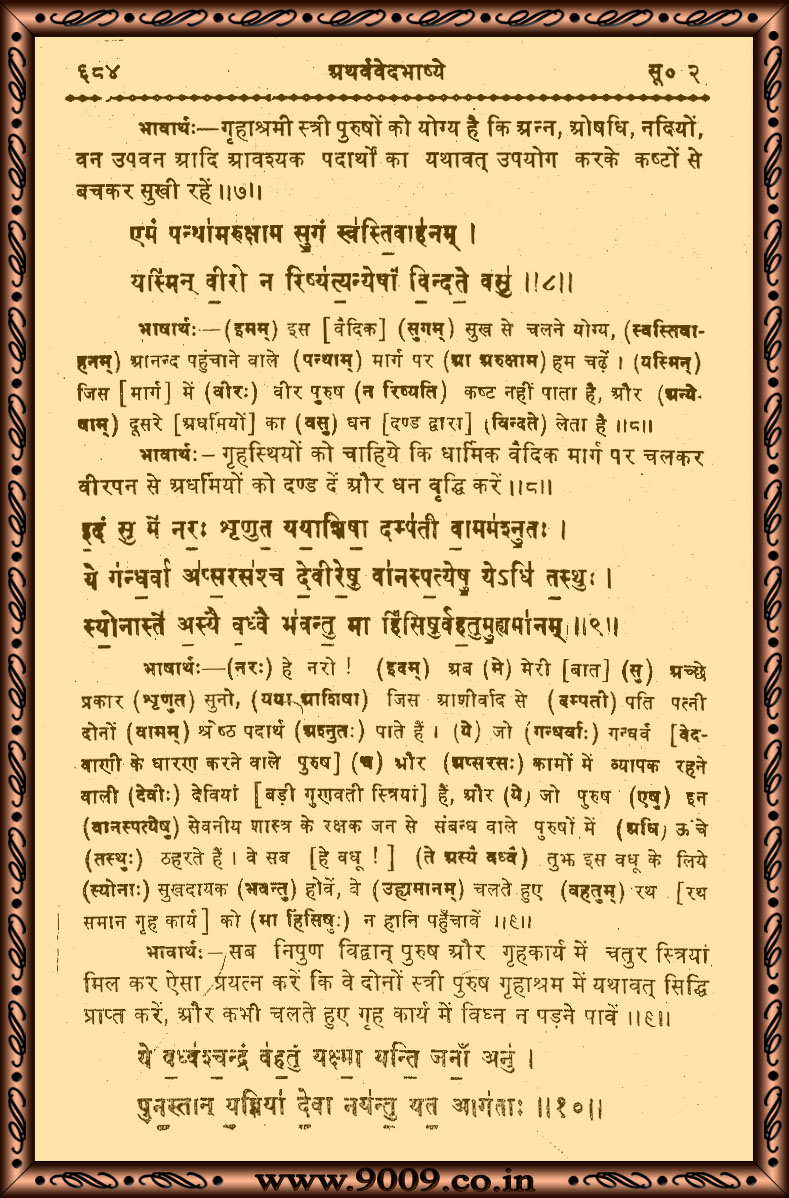 ६८४ अथर्ववेदभाष्ये सू० २
भावार्थः—गृहाश्रमी स्त्री पुरुषों को योग्य है कि अन्न, ओषधि, नदियों,
वन उपवन आदि आवश्यक पदार्थों का यथावत् उपयोग करके कष्टों से
बचकर सुखी रहें ॥७॥
एमं पन्था॑मरुक्षाम सु॒गं स्व॑स्ति॒वाह॑नम् ।
यस्मि॑न् वी॒रो न रिष्य॑त्य॒न्येषां॑ वि॒न्दते॒ वसु॑ ॥८॥
भाषार्थः—(इमम्) इस [वैदिक] (सुगम्) सुख से चलने योग्य, (स्वस्तिवा-
हनम्) आनन्द पहुंचाने वाले (पन्थाम्) मार्ग पर (आ अरुक्षाम) हम चढ़ें । (यस्मिन्)
जिस [मार्ग] में (वीरः) वीर पुरुष (न रिष्यति) कष्ट नहीं पाता है, और (अन्ये-
षाम्) दूसरे [अधर्मियों] का (वसु) धन [दण्ड द्वारा] (विन्दते) लेता है ॥८॥
भावार्थः—गृहस्थियों को चाहिये कि धार्मिक वैदिक मार्ग पर चलकर
वीरपन से अधर्मियों को दण्ड दें और धन वृद्धि करें ॥८॥
इ॒दं सु मे॑ नरः शृणु॒त यया॒शिषा॒ दम्प॑ती वा॒मम॑श्नु॒तः ।
ये ग॑न्ध॒र्वा अ॑प्स॒रस॑श्च दे॒वीरे॒षु वा॑नस्प॒त्येषु॒ येऽधि॑ त॒स्थुः ।
स्यो॒नास्ते॑ अ॒स्यै व॒ध्वै॑ भ॑वन्तु॒ मा हिं॑सिषुर्वह॒तुमु॒ह्यमा॑नम् ॥९॥
भाषार्थः—(नरः) हे नरो ! (इदम्) अब (मे) मेरी [बात] (सु) अच्छे
प्रकार (शृणुत) सुनो, (यया आशिषा) जिस आशीर्वाद से (दम्पती) पति पत्नी
दोनों (वामम्) श्रेष्ठ पदार्थ (अश्नुतः) पाते हैं । (ये) जो (गन्धर्वाः) गन्धर्व [वेद-
वाणी के धारण करने वाले पुरुष] (च) और (अप्सरसः) कामों में व्यापक रहने
वाली (देवीः) देवियां [बड़ी गुणवती स्त्रियां] हैं, और (ये) जो पुरुष (एषु) इन
(वानस्पत्येषु) सेवनीय शास्त्र के रक्षक जन से संबन्ध वाले पुरुषों में (अधि) ऊंचे
(तस्थुः) ठहरते हैं । वे सब [हे वधू ! ] (ते अस्यै वध्वै) तुझ इस वधू के लिये
(स्योनाः) सुखदायक (भवन्तु) होवें, वे (उह्यमानम्) चलते हुए (वहतुम्) रथ [रथ
समान गृह कार्य] को (मा हिंसिषुः) न हानि पहुँचावें ॥९॥
भावार्थः—सब निपुण विद्वान् पुरुष और गृहकार्य में चतुर स्त्रियां
मिल कर ऐसा प्रयत्न करें कि वे दोनों स्त्री पुरुष गृहाश्रम में यथावत् सिद्धि
प्राप्त करें, और कभी चलते हुए गृह कार्य में विघ्न न पड़ने पावें ॥९॥
ये व॒ध्व॑श्च॒न्द्रं व॑ह॒तुं यक्ष्मा॒ यन्ति॒ जनाँ॒ अनु॑ ।
पुन॒स्तान् य॒ज्ञिया॑ दे॒वा नय॑न्तु॒ यत॒ आग॑ताः ॥१०॥
www.9009.co.in